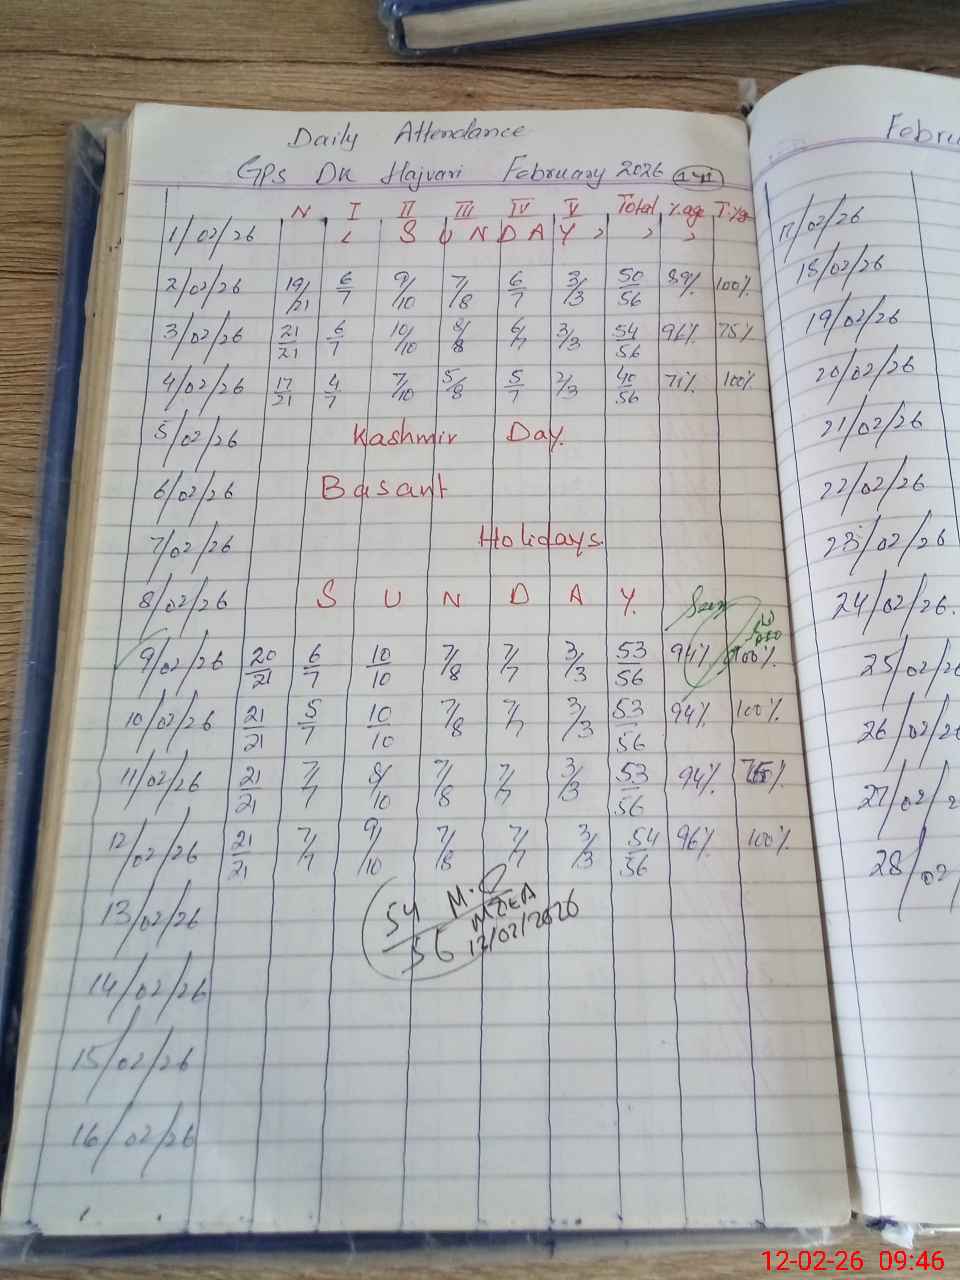 Daily Attendance
GPS DK Hajvari February 2026
N I II III IV V Total %age T.%age
1/02/26 S U N D A Y
2/02/26 19/21 6/7 9/10 7/8 6/7 3/3 50/56 89% 100%
3/02/26 21/21 6/7 10/10 8/8 6/7 3/3 54/56 96% 75%
4/02/26 17/21 4/7 7/10 5/8 5/7 2/3 40/56 71% 100%
5/02/26 Kashmir Day.
6/02/26 Basant
7/02/26 Holidays.
8/02/26 S U N D A Y.
9/02/26 20/21 6/7 10/10 7/8 7/7 3/3 53/56 94% 100%
10/02/26 21/21 5/7 10/10 7/8 7/7 3/3 53/56 94% 100%
11/02/26 21/21 7/7 8/10 7/8 7/7 3/3 53/56 94%
12/02/26 21/21 7/7 9/10 7/8 7/7 3/3 54/56 96% 100%
54/56 M.O
MZEA
12/02/2026
13/02/26
14/02/26
15/02/26
16/02/26
Febru
17/02/26
18/02/26
19/02/26
20/02/26
21/02/26
22/02/26
23/02/26
24/02/26.
25/02/26
26/02/26
27/02/2
28/02/
12-02-26 09:46